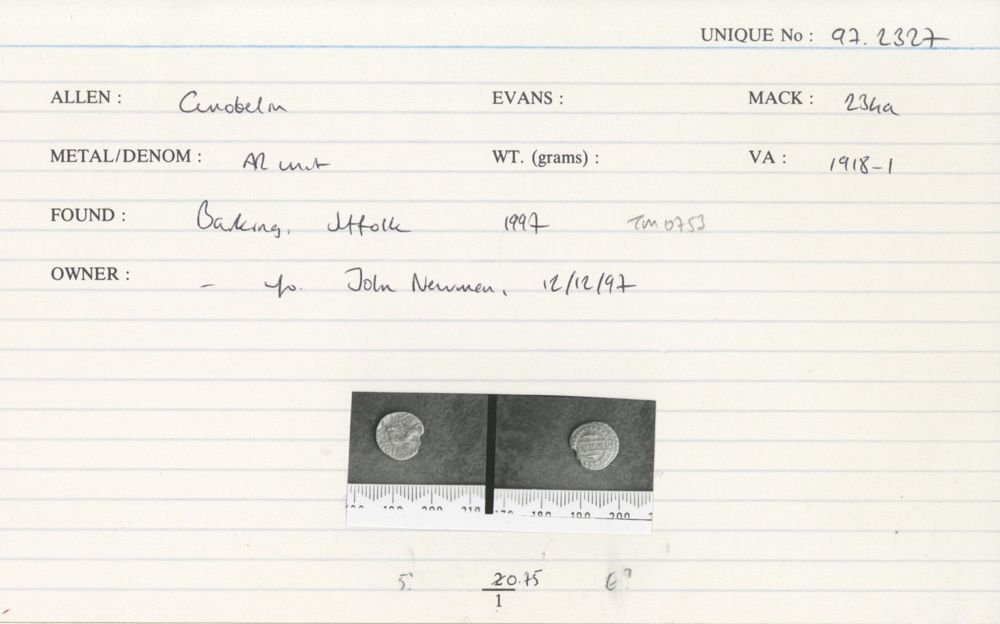 UNIQUE No : 97.2327
ALLEN : Cunobelin EVANS : MACK : 234a
METAL/DENOM : AR unit WT. (grams) : VA : 1918-1
FOUND : Barking, Suffolk 1997 TM 0753
OWNER : - John Newman, 12/12/97
190 200 210 170 180 190 200
20.75
1